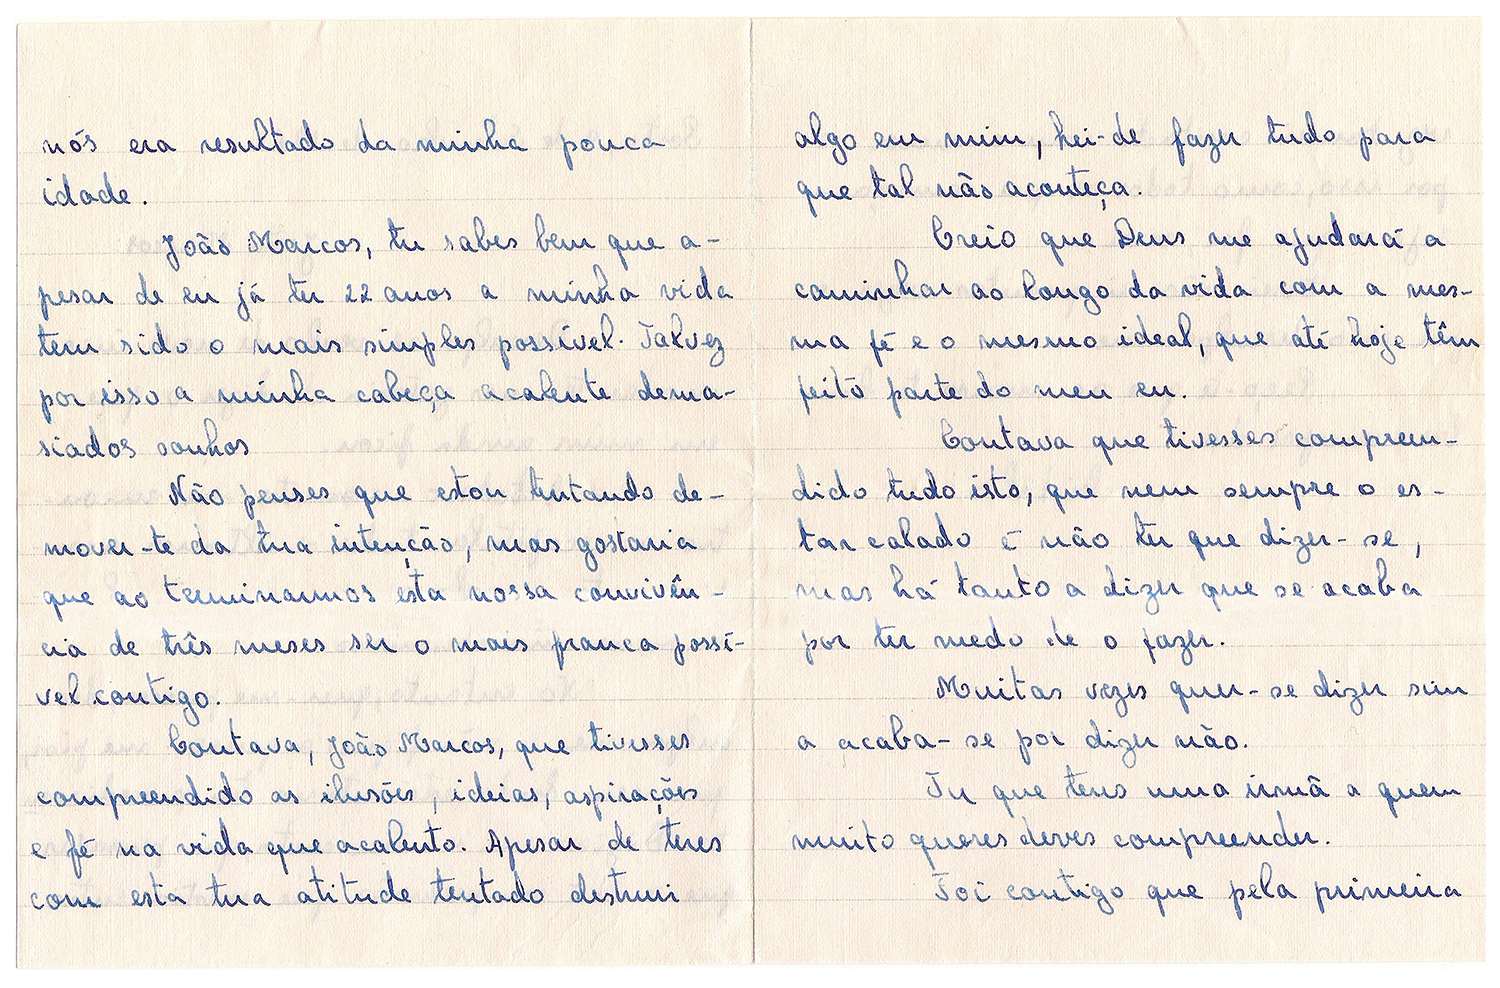 nós era resultado da minha pouca
idade.
João Marcos, tu sabes bem que a-
pesar de eu já ter 22 anos a minha vida
tem sido o mais simples possível. Talvez
por isso a minha cabeça acalente dema-
siados sonhos
Não penses que estou tentando de-
mover-te da tua intenção, mas gostaria
que ao terminarmos esta nossa convivên-
cia de três meses ser o mais franca possí-
vel contigo.
Contava, João Marcos, que tivesses
compreendido as ilusões, ideias, aspirações
e fé na vida que acalento. Apesar de teres
com esta tua atitude tentado destrui
algo em mim, hei-de fazer tudo para
que tal não aconteça.
Creio que Deus me ajudará a
caminhar ao longo da vida com a mes-
ma fé e o mesmo ideal, que até hoje têm
feito parte do meu eu.
Contava que tivesses compreen-
dido tudo isto, que nem sempre o es-
tar calado é não ter que dizer-se,
mas há tanto a dizer que se acaba
por ter medo de o fazer.
Muitas vezes quer-se dizer sim
a acaba-se por dizer não.
Tu que tens uma irmã a quem
muito queres deves compreender.
Foi contigo que pela primeira